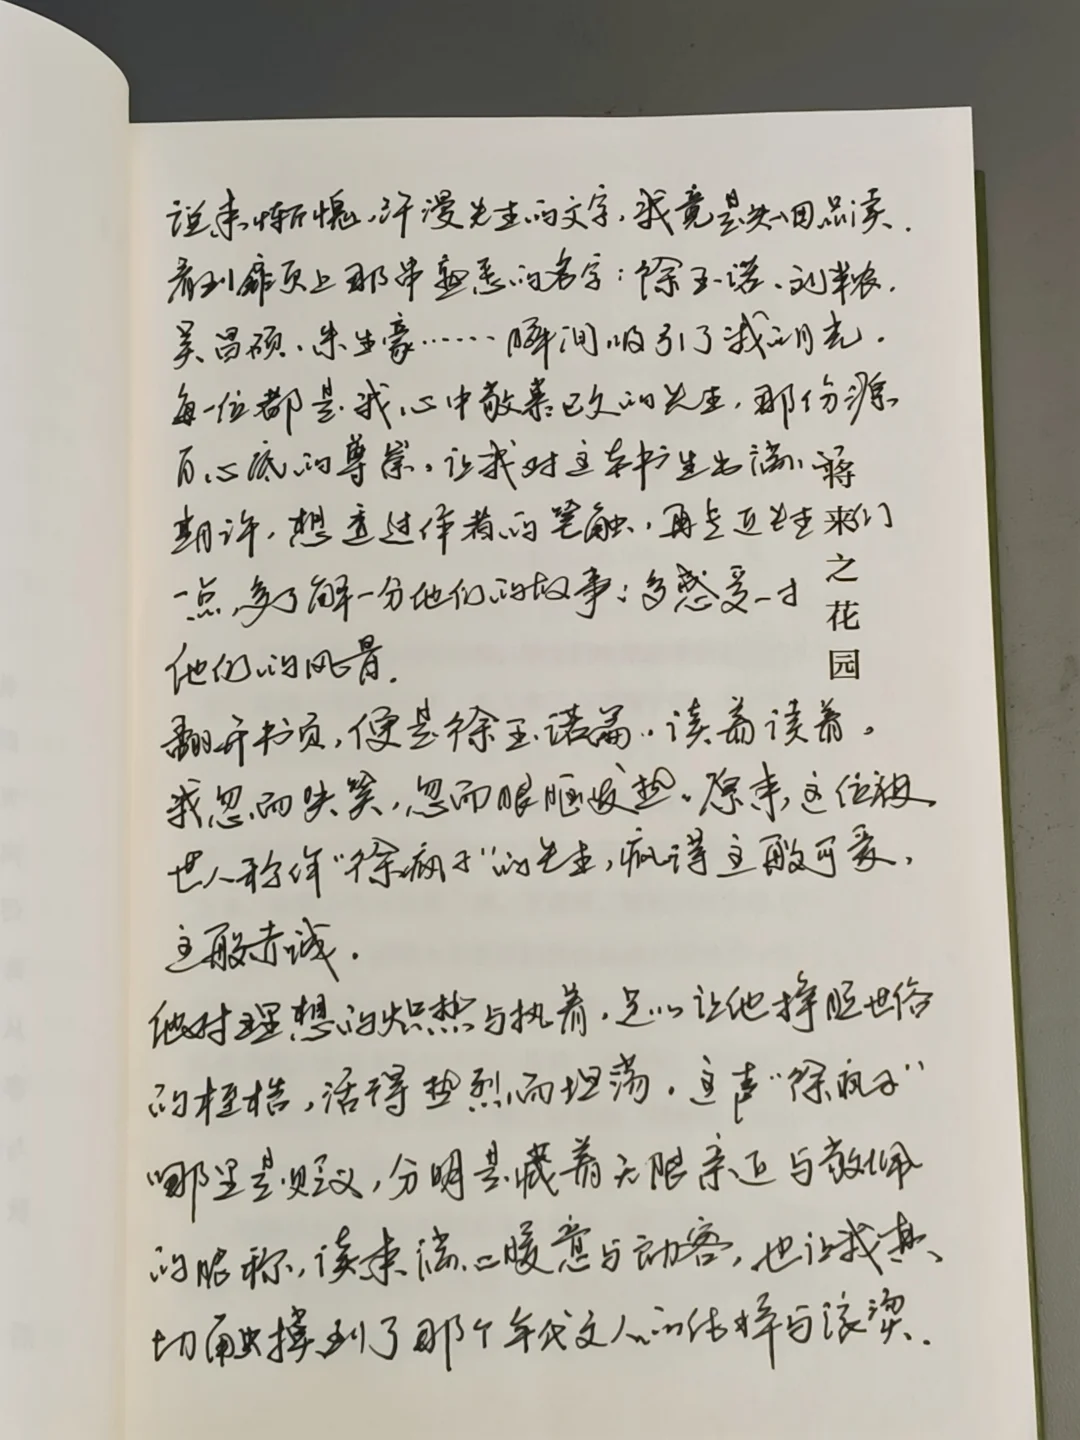 说来惭愧，汗漫先生的文字，我竟是头一回品读．
看到扉页上那串熟悉的名字：徐玉诺、刘半农．
吴昌硕、朱生豪……瞬间吸引了我的目光．
每一位都是我心中敬慕已久的先生，那份源
自心底的尊崇，让我对这本书生出满心
期许，想透过作者的笔触，再走近先生们
一点，多了解一分他们的故事；多感受一寸
他们的风骨．
翻开书页，便是徐玉诺篇．读着读着，
我忽而失笑，忽而眼眶发热。原来，这位被
世人称作“徐疯子”的先生，疯得这般可爱，
这般赤诚．
他对理想的炽热与执着，足以让他挣脱世俗
的桎梏，活得热烈而坦荡．这声“徐疯子”
哪里是贬义，分明是藏着无限亲近与敬佩
的昵称，读来满心暖意与动容，也让我真
切触摸到了那个年代文人的纯粹与滚烫．
将来之花园